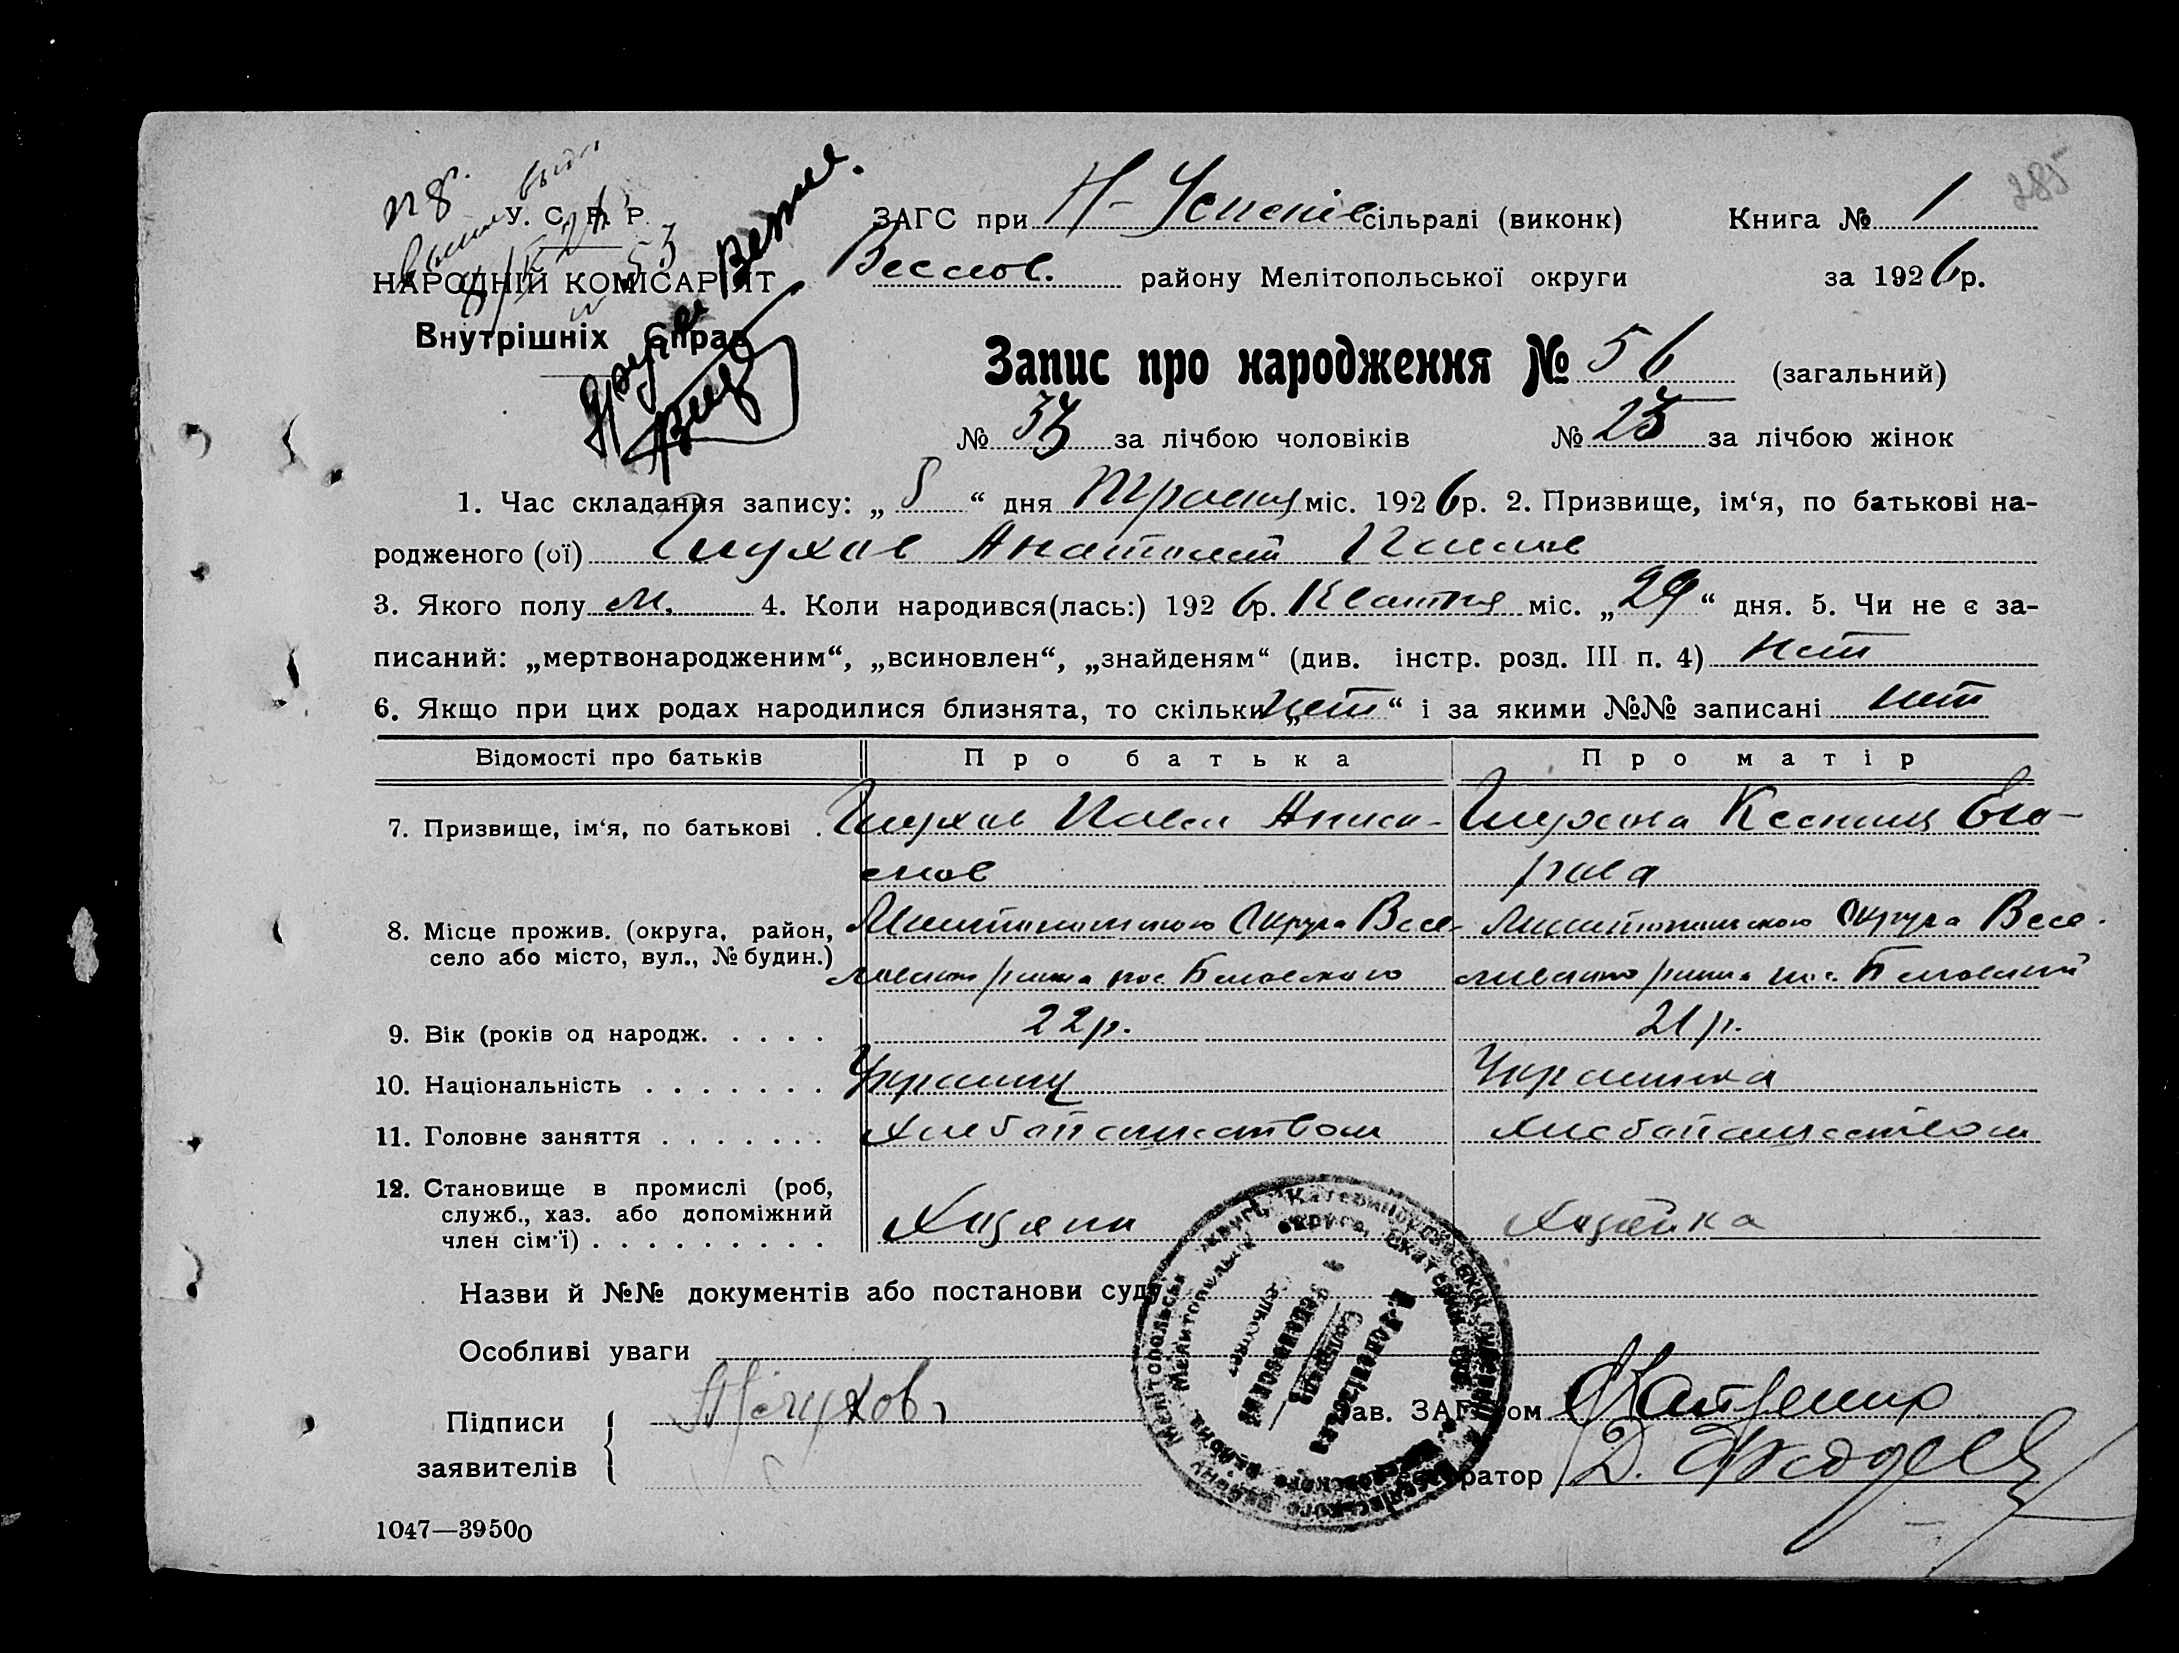 285
У. С. Р. Р.
НАРОДНІЙ КОМІСАРІЯТ
Внутрішніх Справ
ЗАГС при Н-Успенів сільраді (виконк) Книга № 1
Веселов. району Мелітопольської округи за 1926 р.
Запис про народження № 56 (загальний)
№ 33 за лічбою чоловіків № 23 за лічбою жінок
1. Час складання запису: „ 5 “ дня Травня міс. 1926 р. 2. Призвище, ім‘я, по батькові на-
родженого (ої) Глухов Анатолий Павлов
3. Якого полу М. 4. Коли народився(лась:) 1926 р. Квітня міс. „ 29 “ дня. 5. Чи не є за-
писаний: „мертвонародженим“, „всиновлен“, „знайденям“ (див. інстр. розд. III п. 4) Нет
6. Якщо при цих родах народилися близнята, то скільки „ нет “ і за якими №№ записані нет
Відомості про батьків Про батька Про матір
7. Призвище, ім‘я, по батькові . Глухов Павел Аниси- Глухова Ксения Его-
мов рова
8. Місце прожив. (округа, район, Мелитопольською Округа Весе- Мелитопольською Округа Весе-
село або місто, вул., № будин.) ловского района пос. Беловского ловского района пос. Беловский
9. Вік (років од народж. . . . . 22 р. 21 р.
10. Національність . . . . . . . Украинц Украинка
11. Головне заняття . . . . . . . Хлебопашеством Хлебопашеством
12. Становище в промислі (роб,
служб., хаз. або допоміжний Хазяин Хазяйка
член сім‘ї) . . . . . . . . .
Назви й №№ документів або постанови суду
Особливі уваги
Підписи Глухов
заявителів
Зав. ЗАГСом
Д.
1047—39500